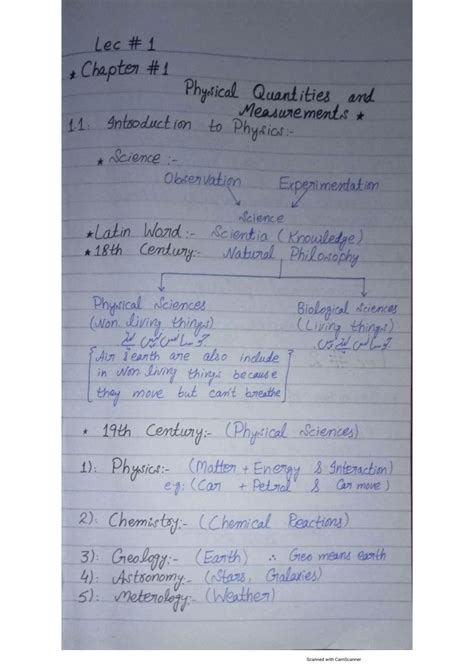 Lec # 1
* Chapter #1
Physical Quantities and
Measurements *
1.1: Introduction to Physics:-
* Science :-
Observation Experimentation
Science
* Latin Word:- Scientia (Knowledge)
* 18th Century:- Natural Philosophy
Physical Sciences Biological Sciences
(Non. living things) (Living things)
[Air & earth are also include
in Non living things because
they move but can't breathe]
* 19th Century:- (Physical Sciences)
1): Physics:- (Matter + Energy & Interaction)
e.g: (Car + Petrol & Car move)
2): Chemistry:- (Chemical Reactions)
3): Geology:- (Earth) ∴ Geo means earth
4): Astronomy:- (Stars, Galaxies)
5): Meterology:- (Weather)
Scanned with CamScanner